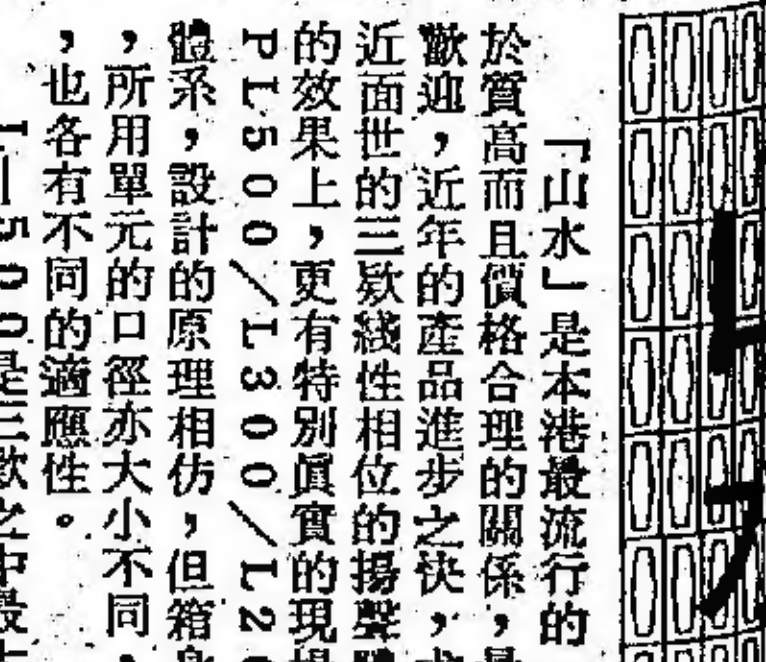 「山水」是本港最流行的
於質高而且價格合理的關係，最
歡迎，近年的產品進步之快，
近面世的三欵綫性相位的揚聲
的效果上，更有特別眞實的現場
PL500／L300／L20
體系，設計的原理相仿，但箱身
，所用單元的口徑亦大小不同，
，也各有不同的適應性。
L—500是三欵之中最